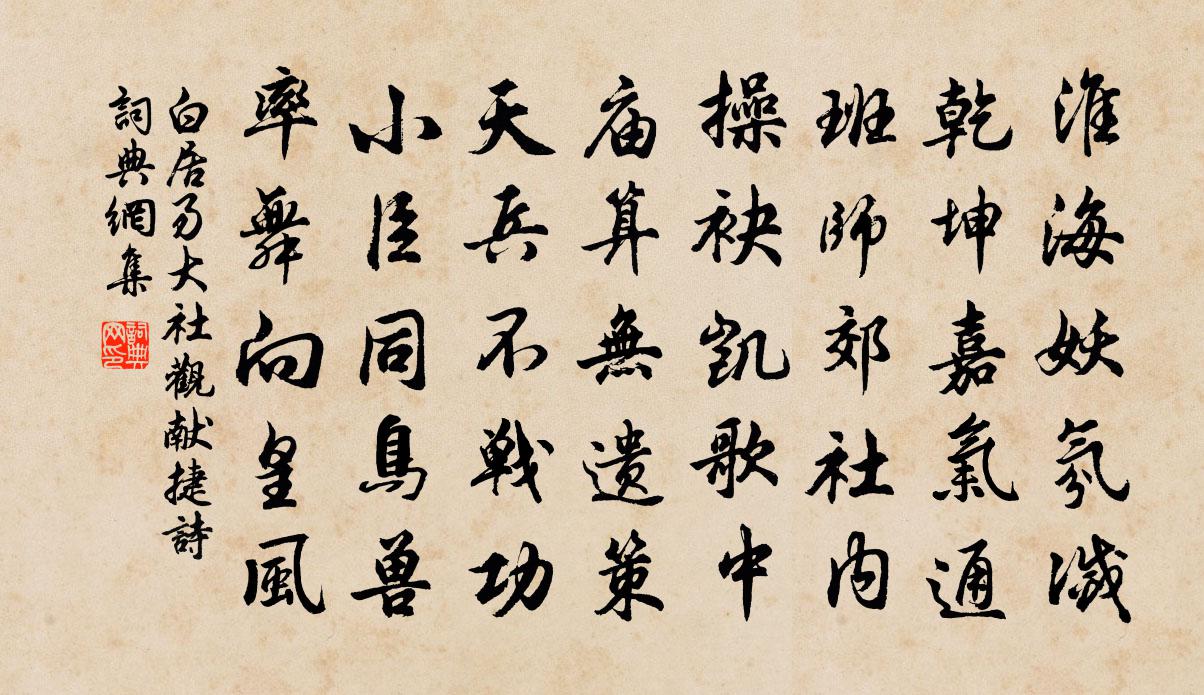 淮海妖氛滅
乾坤嘉氣通
班師郊社内
操袂凱歌中
庙算無遗策
天兵不戦功
小臣同鳥兽
率舞向皇風
白居易大社觀献捷詩
詞典網集
詞典
网印